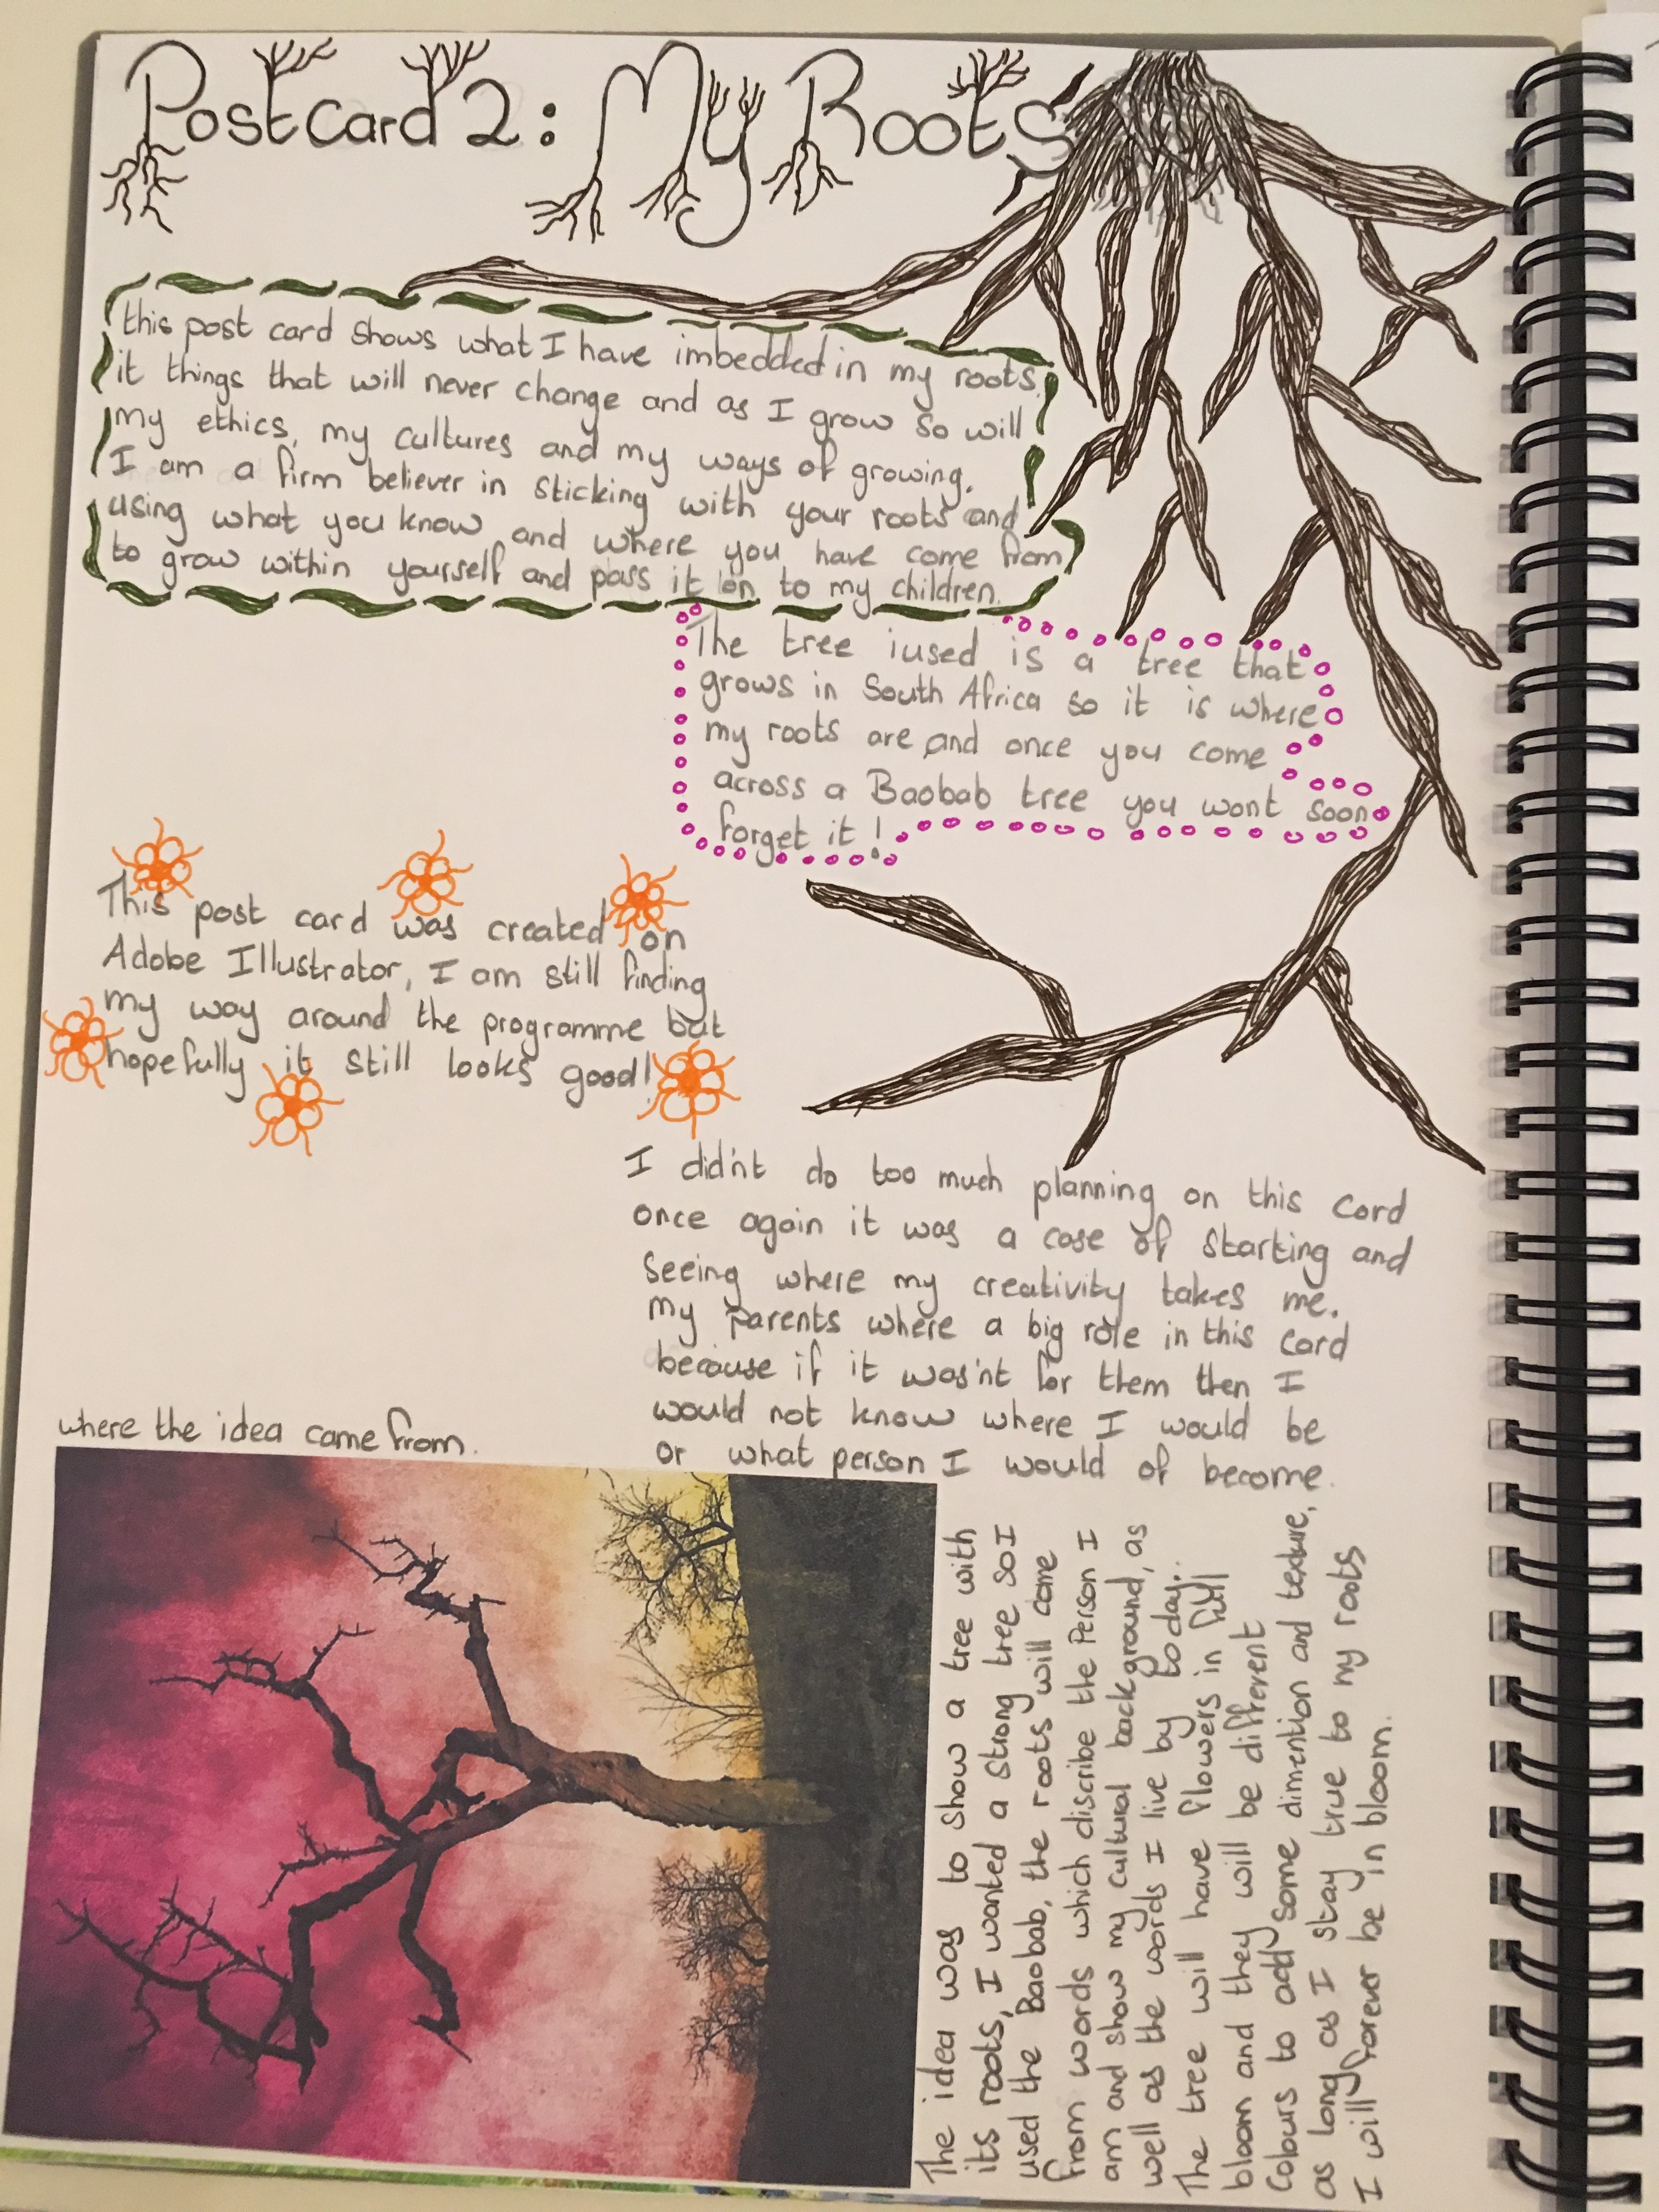 Postcard 2: My Roots
this post card shows what I have imbedded in my roots,
it things that will never change and as I grow so will
my ethics, my cultures and my ways of growing.
I am a firm believer in sticking with your roots and
using what you know and where you have come from
to grow within yourself and pass it on to my children.
The tree iused is a tree that
grows in South Africa so it is where
my roots are and once you come
across a Baobab tree you wont soon
forget it!
This post card was created on
Adobe Illustrator, I am still finding
my way around the programme but
hopefully it still looks good!
I didn't do too much planning on this card
once again it was a case of starting and
seeing where my creativity takes me.
my parents where a big role in this card
because if it was'nt for them then I
would not know where I would be
or what person I would of become.
where the idea came from.
The idea was to show a tree with
its roots, I wanted a strong tree so I
used the Baobab, the roots will come
from words which discribe the Person I
am and show my cultural background, as
well as the words I live by today.
The tree will have flowers in full
bloom and they will be different
colours to add some dimention and texture,
as long as I stay true to my roots
I will forever be in bloom.